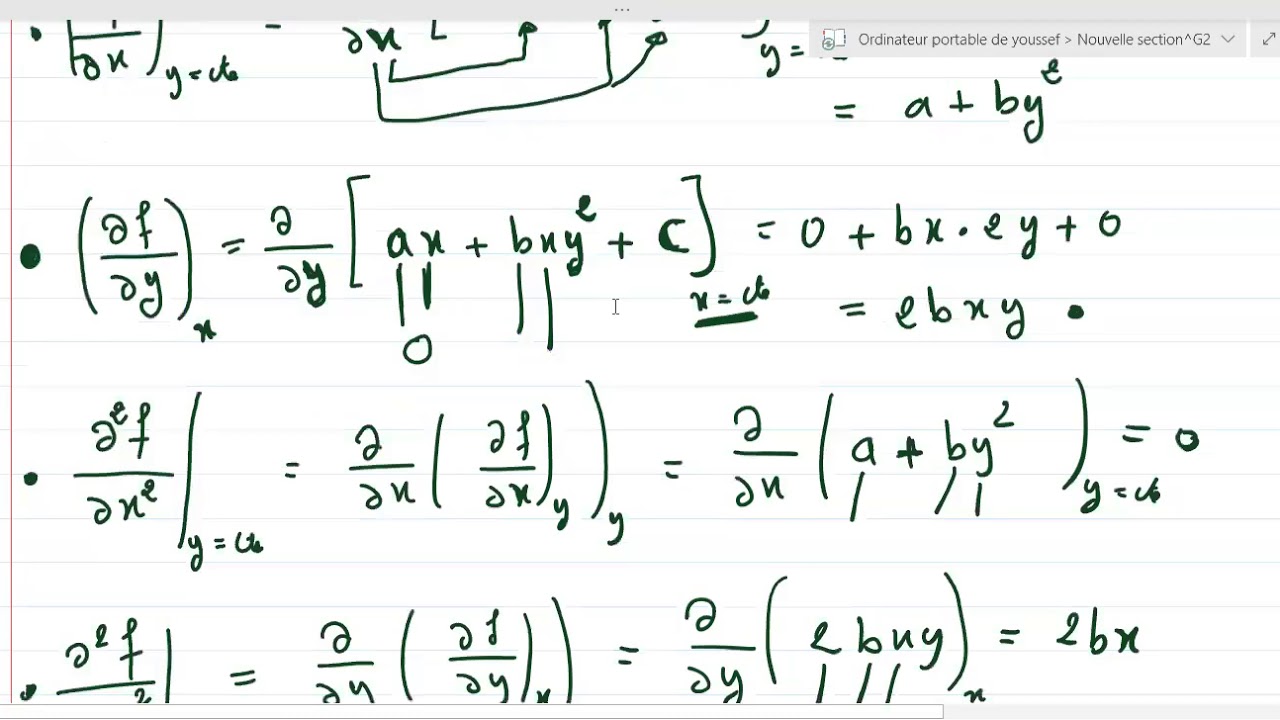 Ordinateur portable de youssef > Nouvelle section^G2
∂x)y=cte = ∂/∂x [ y=
= a + by²
• (∂f/∂y)x = ∂/∂y [ax + bxy² + c]x=cte = 0 + bx·2y + 0
0
= 2bxy •
• ∂²f/∂x²|y=cte = ∂/∂x ((∂f/∂x)y)y = ∂/∂x (a + by²)y=cte = 0
• ∂²f/ ²| = ∂/∂y ((∂f/∂y)x) = ∂/∂y (2bxy)x = 2bx